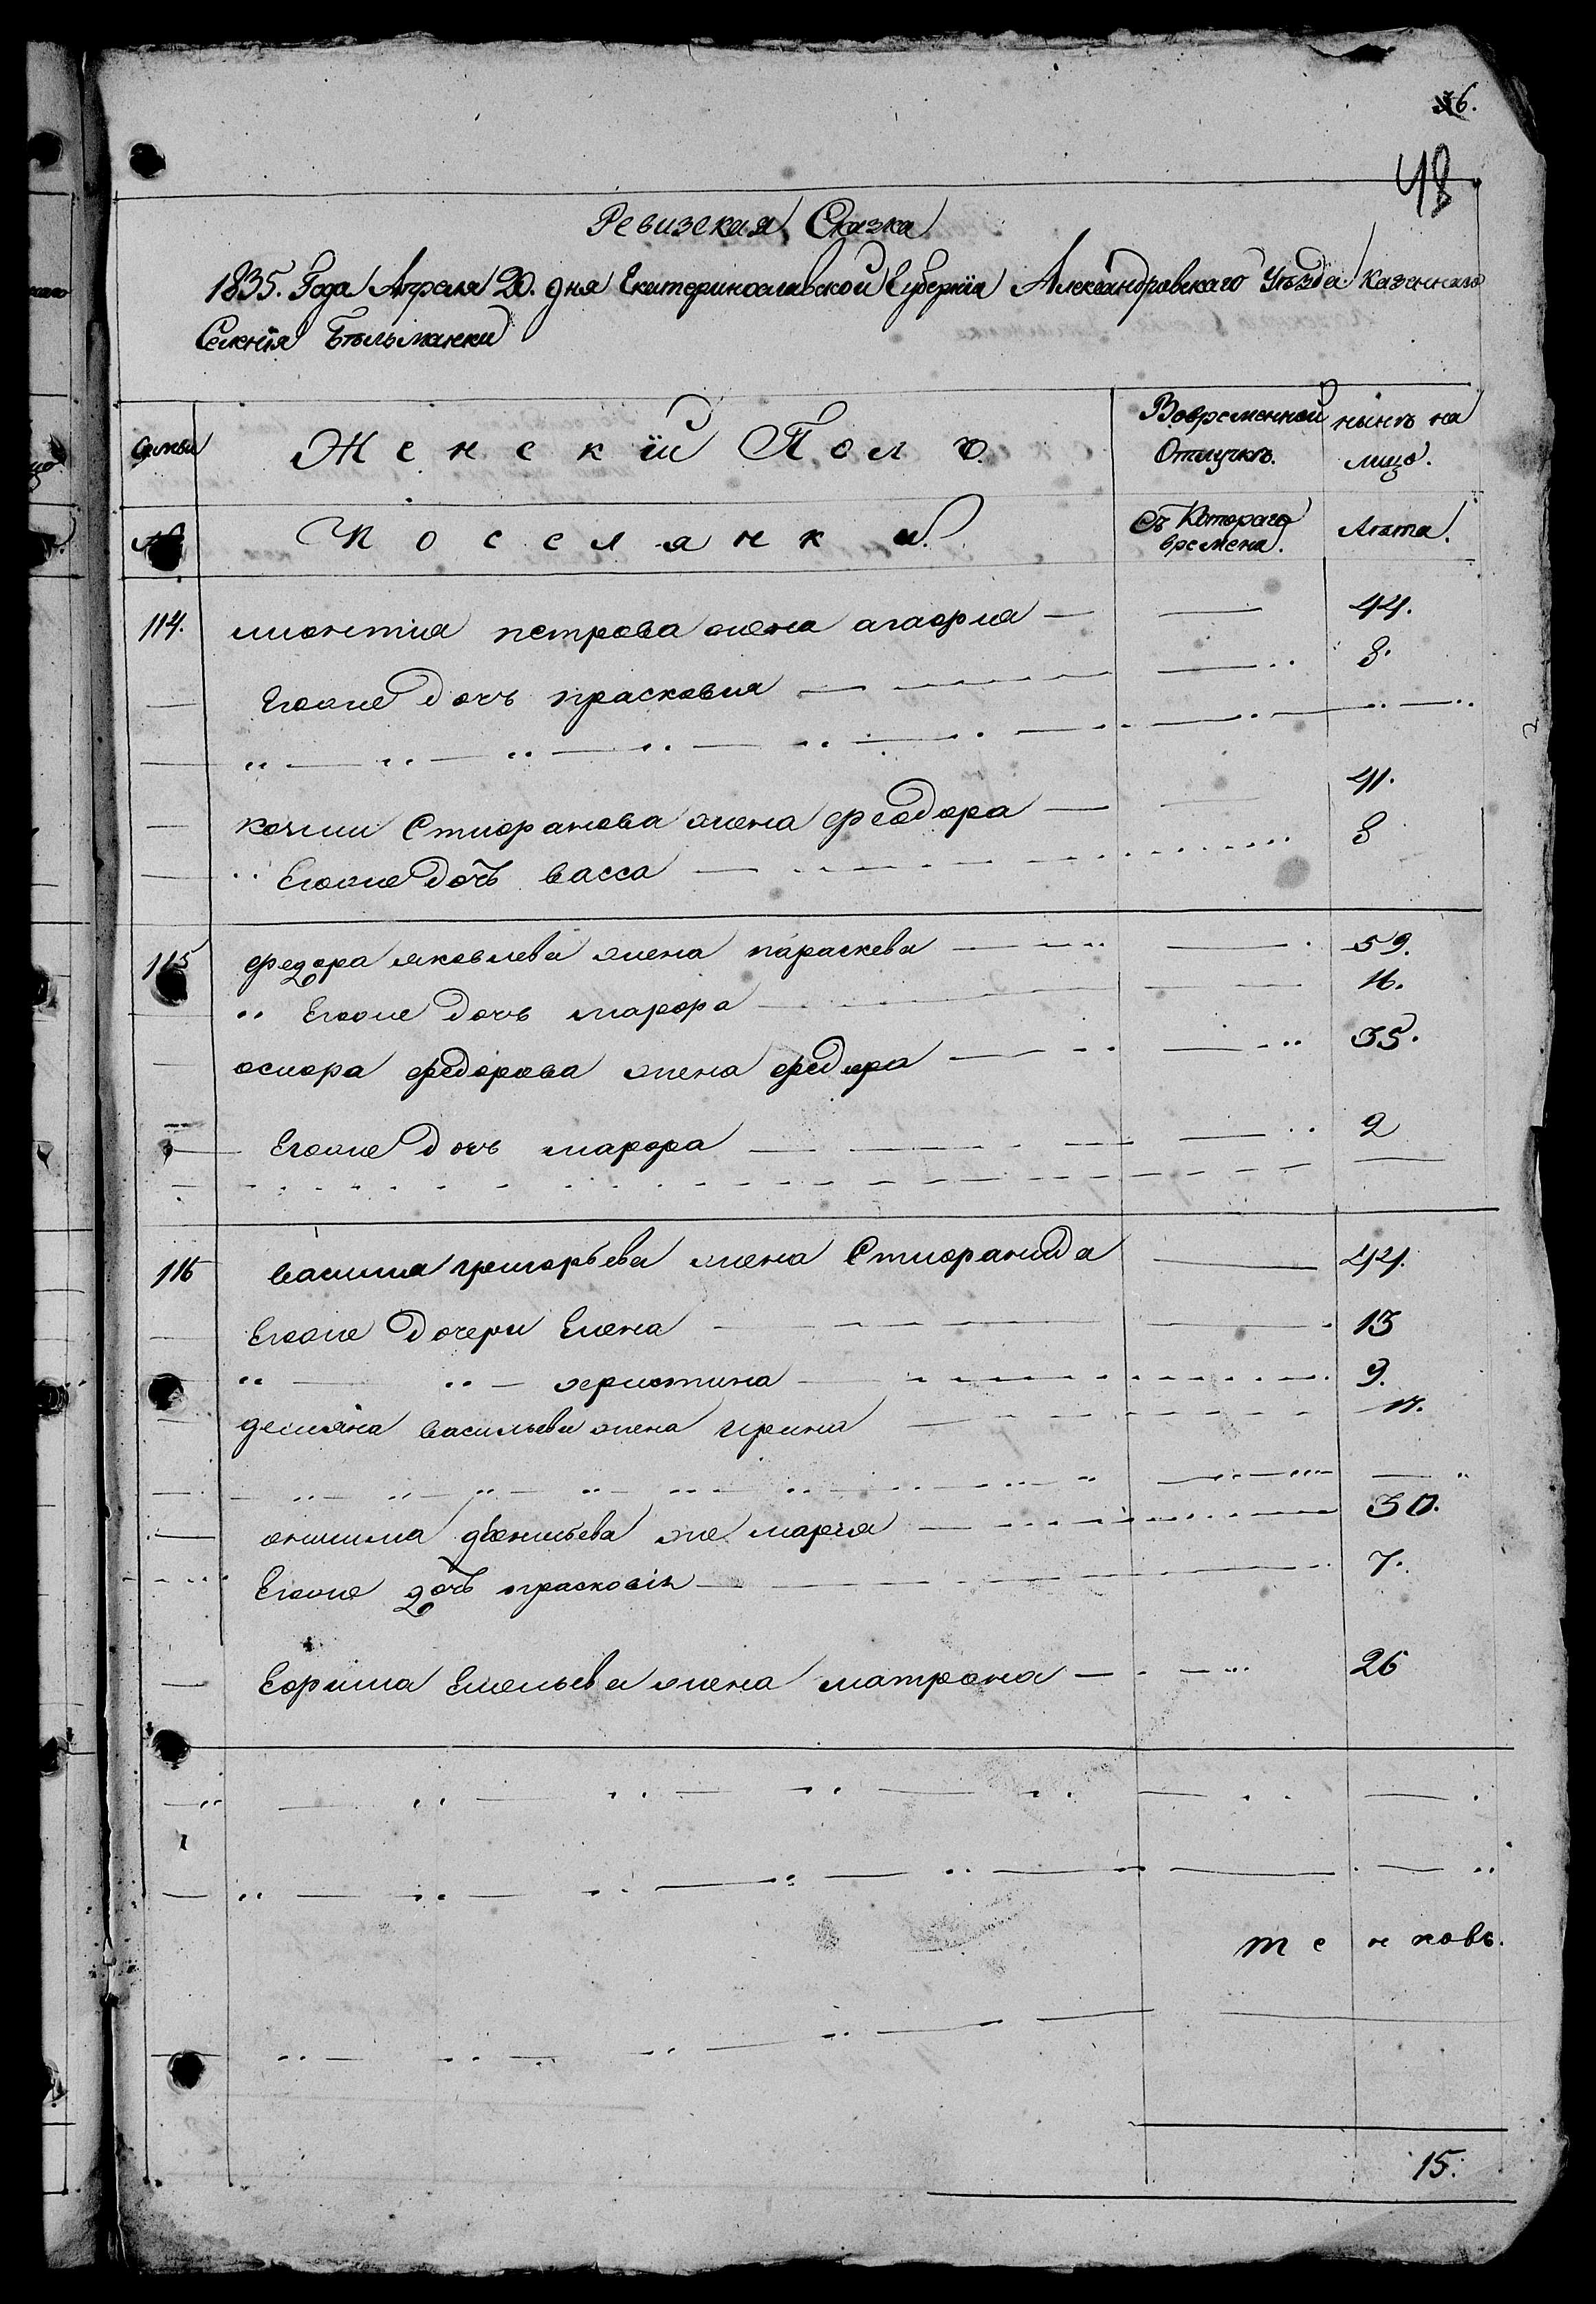 36.
48
Ревизская Сказка
1835. Года Апреля 20. дня Екатеринославской Губернїи Александровскаго Уѣзда Казеннаго
Селенїя Бѣльманки
Семьи
Женскїй Полъ.
Вовременной Отлучкѣ.
нынѣ на лицо.
№
Поселянки.
Съ Котораго времена.
Лѣта.
114. леонтия петрова жена агафия 44.
Егоже дочь прасковия 8.
козми Стифанова жена феодора 41.
Егоже дочь васса 8
115 федора яковлева жена параскева 59.
Егоже дочь марфа 16.
осифа федорова жена федора 35.
Егоже дочь марфа 2
116 василия григорьева жена Стифанида 44.
Егоже дочери Елена 13
христина 9.
демяна васильева жена ирина
анисима же мария 30.
Егоже дочь прасковія 7.
Ефима жена матрона 26
15.